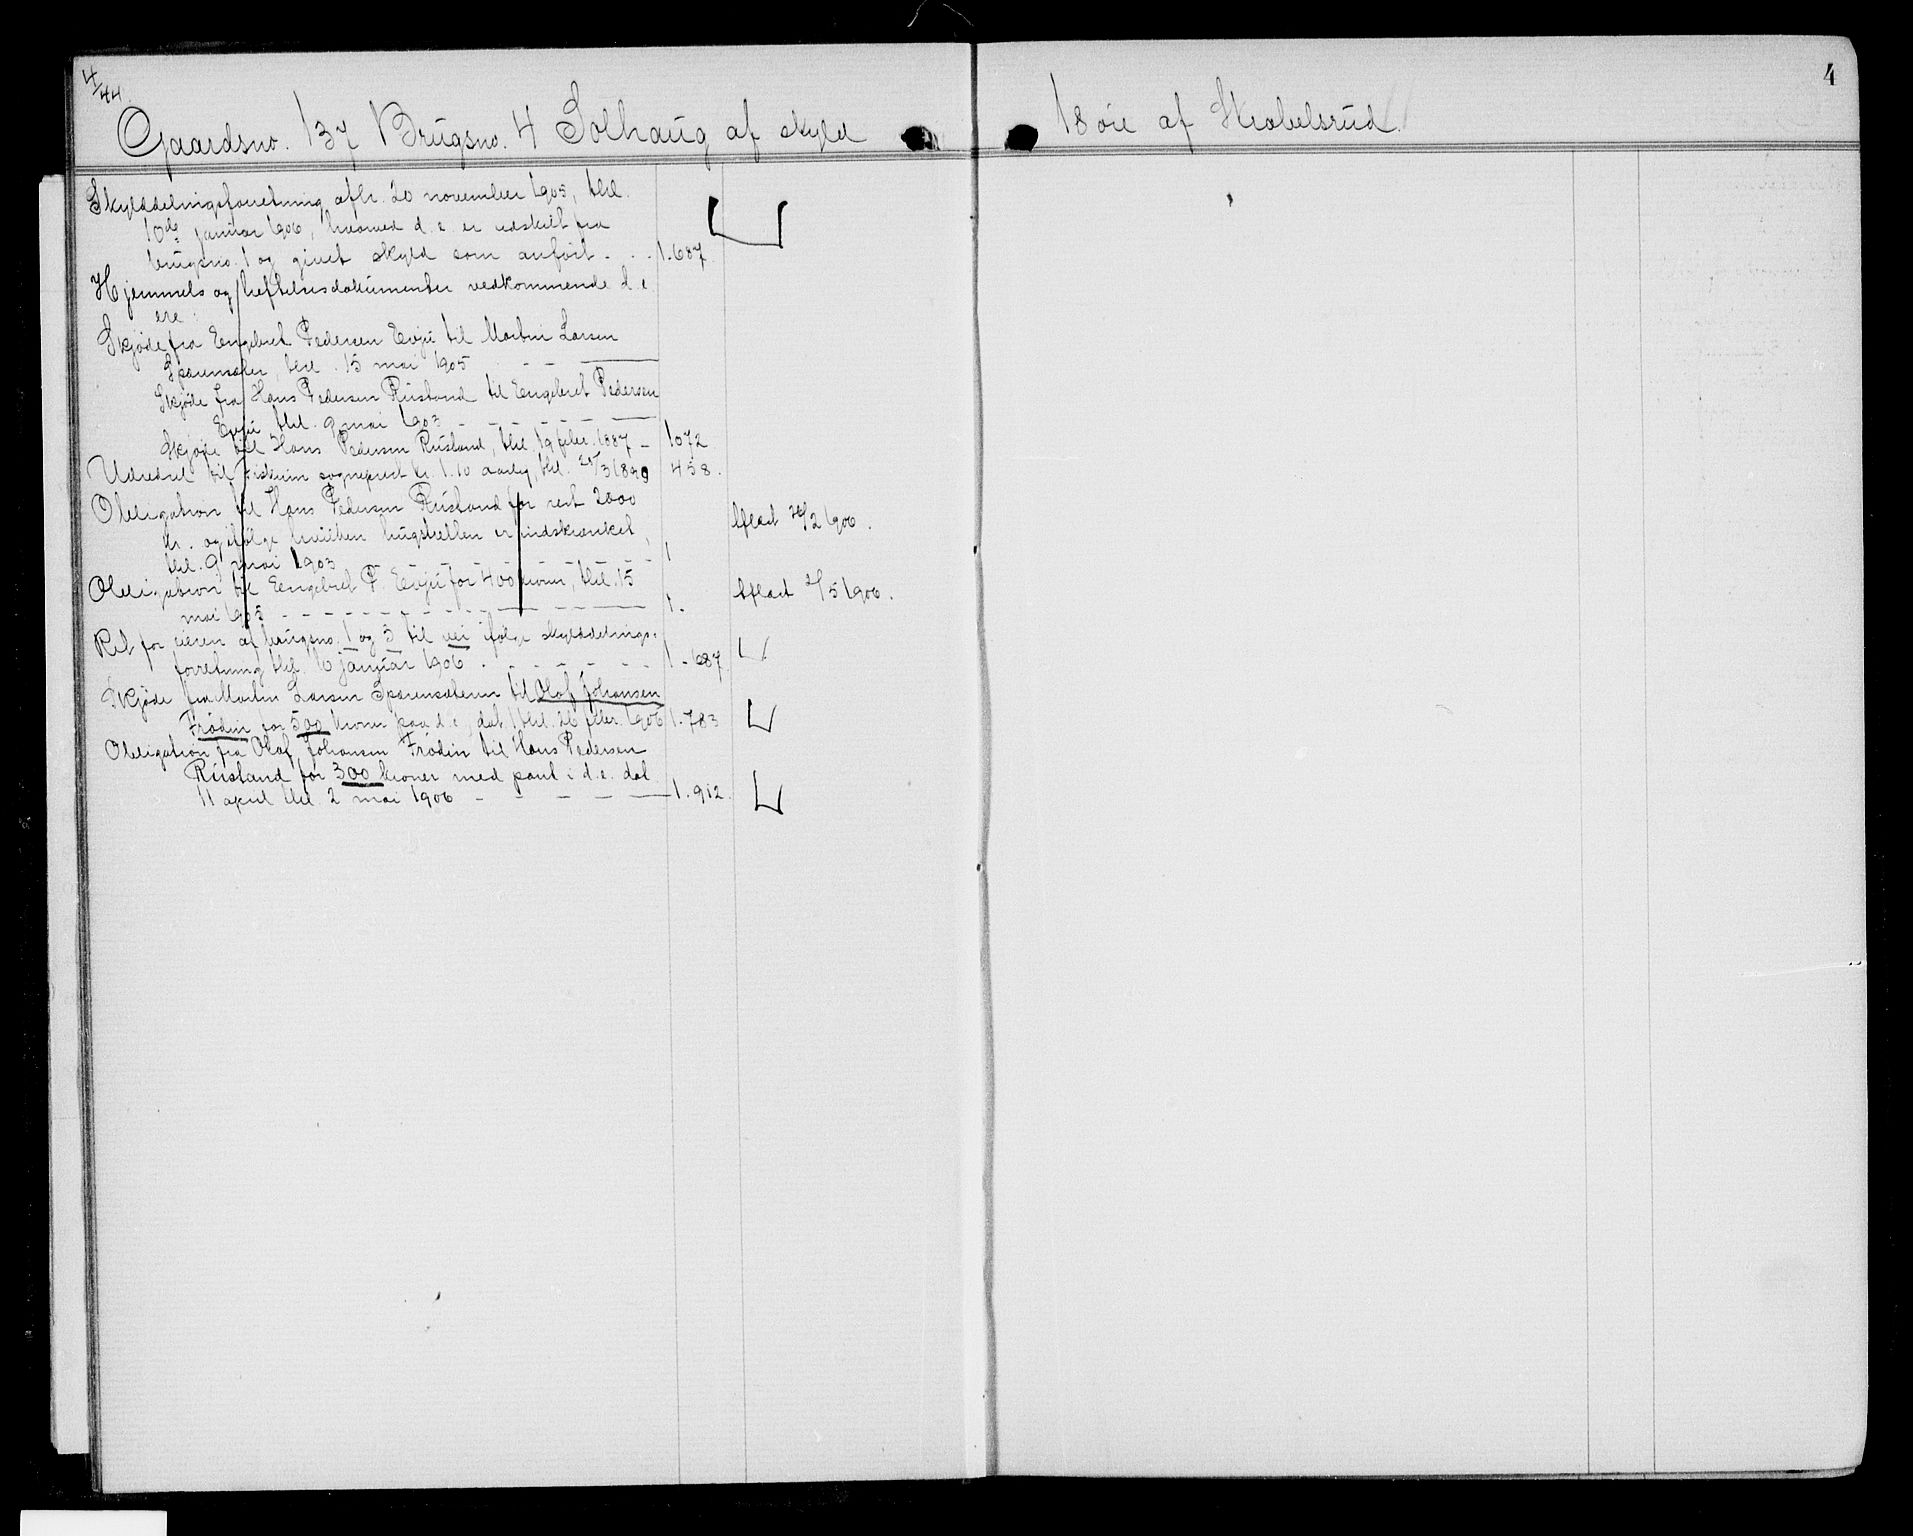 4/44
4
Gaardsno. 137 Brugsno. 4 Solhaug af skyld 18 øre af Skrabelsrud.
Skylddelingsforretning afh. 20 november 1905, thl.
10de januar 1906, hvorved d. e. er udskilt fra
brugsno. 1 og givet skyld som anført - - - 1.687.
Hjemmels og heftelsesdokumenter vedkommende d. e.
ere:
Skjøde fra Engebret Pedersen Evju til Martin Larsen
thl. 15 mai 1905 - -
Skjøde fra Hans Pedersen Rustand til Engebret Pedersen
Evju thl. 9 mai 1903 - - - - -
Skjøde til Hans Pedersen Rustand, thl. 19 febr. 1887 - 1072
Udredsel til Fiskum sogneprest kr. 1.10 aarlig, thl. 458.
Obligation til Hans Pedersen Rustand for rest 2000
kr. og ifølge hvilken hugstretten er indskrænket,
thl. 9 mai 1903 - - - - - 1 Aflæst 26/2 1906.
Obligation til Engebret P. Evju for 400 kroner, thl. 15
mai 1905 - - - - - 1. Aflæst 2/5 1906.
Ret for eieren af brugsno. 1 og 3 til vei ifølge skylddelings-
forretning thl. 10 januar 1906 - - - - 1.687
Skjøde fra Martin Larsen til Olaf Johansen
Frødin for 500 kroner paa d. e., dat. thl. 26 febr. 1906 1.783
Obligation fra Olaf Johansen Frødin til Hans Pedersen
Rustand for 300 kroner med pant i d. e. dat.
11 april thl. 2 mai 1906 - - - - 1.912.